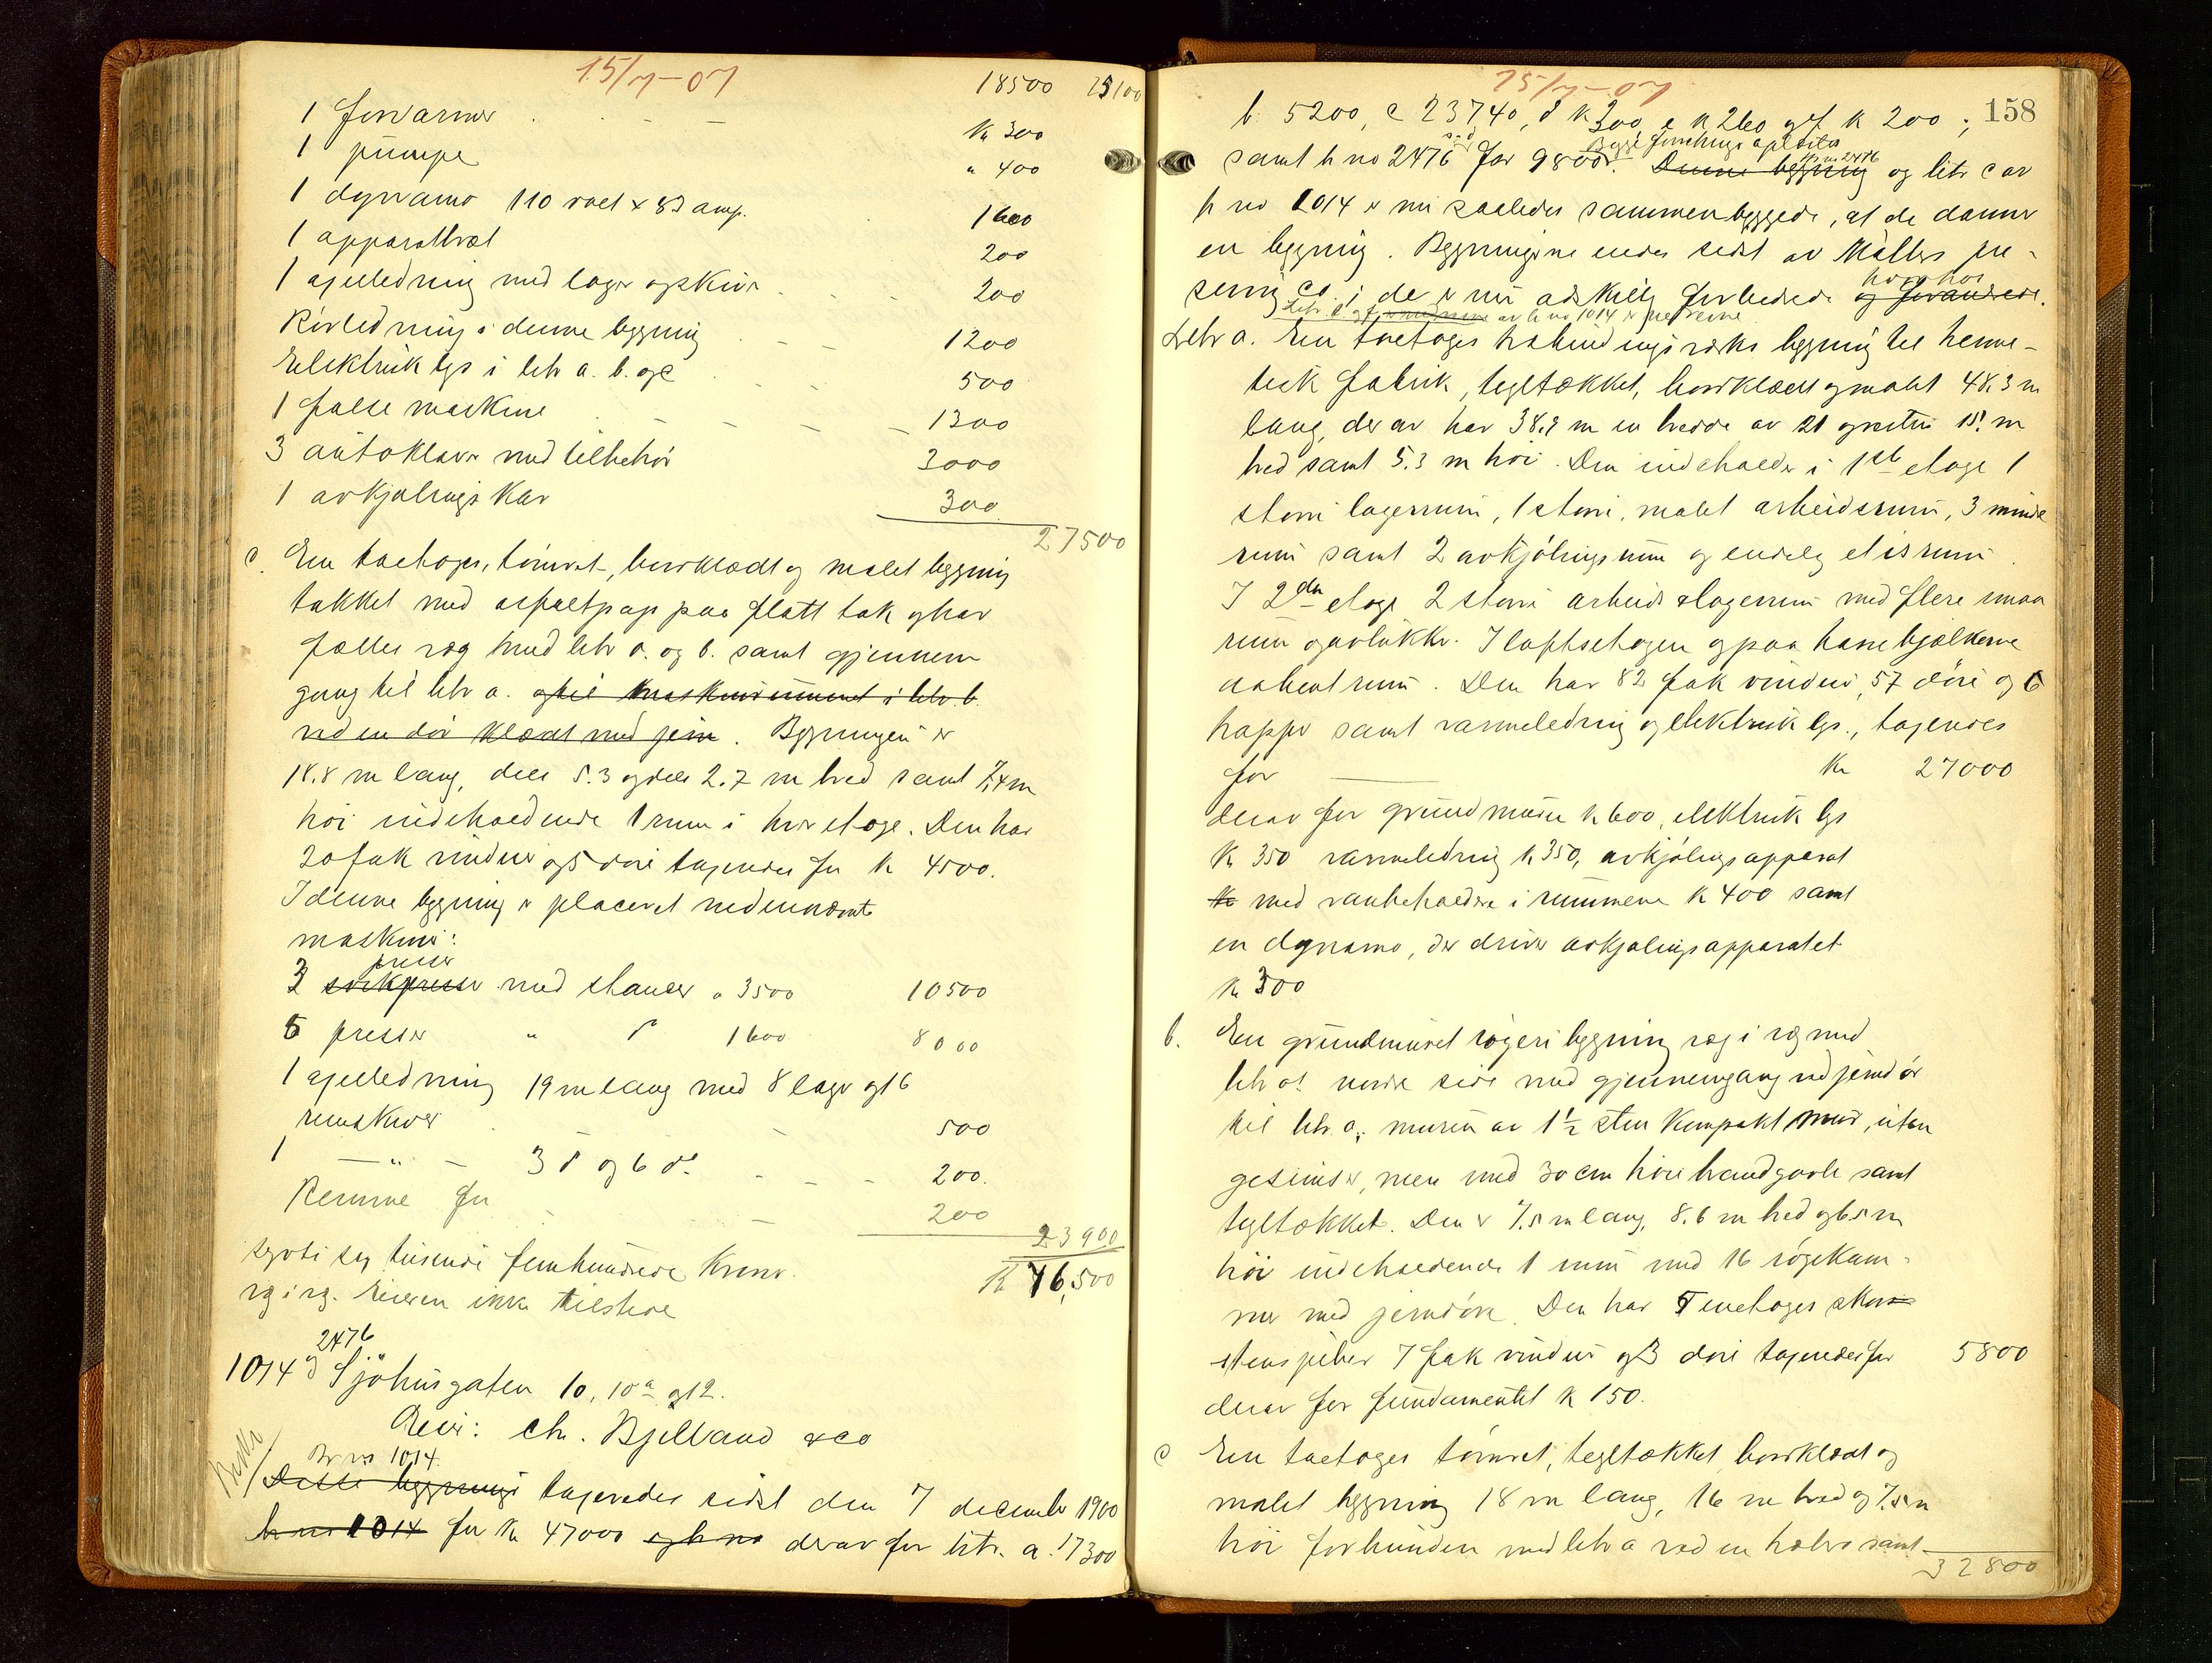 15/7-07
18500 25100
1 forvarmer . - - K 300
1 pumpe " 400
1 dynamo 110 volt x 83 amp. 1600
1 apparattavl 200
1 axelledning med lager og skiver . . - 200
Rörledning i denne bygning . - - 1200
Elektrisk lys i litr a. b. og c . - - 500
1 false maskine . - - - - 1300
3 autoklaver med tilbehör 3000
1 avkjølings kar 300
27500
c. En toetages, tömret, bordklædt og malet bygning
tækket med asfaltpap paa flatt tak og har
fælles væg med litr a. og b. samt gjennem
gang til litr a. og til maskinrummet i litr. b.
ved en dör klædt med jern. Bygningen er
18.8 m lang, dels 5.3 og dels 2.7 m bred samt 7,4 m
höi indeholdende 1 rum i hver etage. Den har
20 fak vinduer og 5 döre taxeredes for k 4500.
I denne bygning er placeret nedennævnte
maskiner:
presser
3 med stanser a 3500 10500
5 presser " d 1600 8000
1 axelledning 19 m lang med 8 lager og 16
remskiver 500
1 —"— 3 d og 6 do - - - 200.
Remme for - - 200
23900
sytti sex tusende femhundrede kroner. K 76,500
rg i rg. Eieren ikke tilstede
2476
1014 og Sjöhusgaten 10, 10a og 12.
Eier: Chr. Bjelland & co
Br no 1014.
Disse bygninger taxeredes sidst den 7 december 1900
b no 1014 for K 47000 og b no derav for litr. a. 17300
15/7-07
158
b. 5200, c 23740, d k 300, e k 260 og f k 200;
samt b no 2476 for 9800. Denne bygning og litr c av
b no 1014 er nu saaledes sammenbyggede, at de danner
en bygning. Bygningerne eiedes sidst av Møllers pre-
serving co; de er nu adskillig forbedrede og forandrede.
Litr a. En toetages utmurings verks bygning til herme-
tisk fabrik, tegltækket, bordklædt og malet 48.3 m
lang, der av har 38.3 m en bredde av 21 og resten 15. m
bred samt 5.3 m höi. Den indeholder i 1ste etage 1
stort lagerrum, 1 stort, malet arbeidsrum, 3 mindre
rum samt 2 avkjölingsrum og endelig et isrum.
I 2den etage 2 store arbeids & lagerrum med flere smaa
rum og avlukker. I loftsetagen og paa hanebjælkerne
aabent rum. Den har 82 fak vinduer, 57 döre og 6
trapper samt varmeledning og elektrisk lys, taxeredes
for ——— Kr 27000
derav for grundmuren k 600, elektrisk lys
K 350 varmeledning k 350, avkjölings apparat
med vandbeholdere i rummene K 400 samt
en dynamo, der driver avkjølingsapparatet
K 300
b. En grundmuret rögeri bygning væg i væg med
litr a. nordre side med gjennemgang ved jerndör
til litr a; muren av 1½ sten kompakt mur, uten
gesimser, men med 30 cm höie brandgavle samt
tegltækket. Den er 7.5 m lang, 8.6 m bred og 6.5 m
höi indeholdende 1 rum med 16 rögekam-
mer med jerndöre. Den har 5 enetages skor
stenspiber 7 fak vinduer og 3 döre taxeredes for 5800
derav for fundamentet k 150.
c En toetages tömret, tegltækket, bordklædt og
malet bygning 18 m lang, 16 m bred og 7.5 m
höi forbunden med litr a ved en halvtr samt
32800